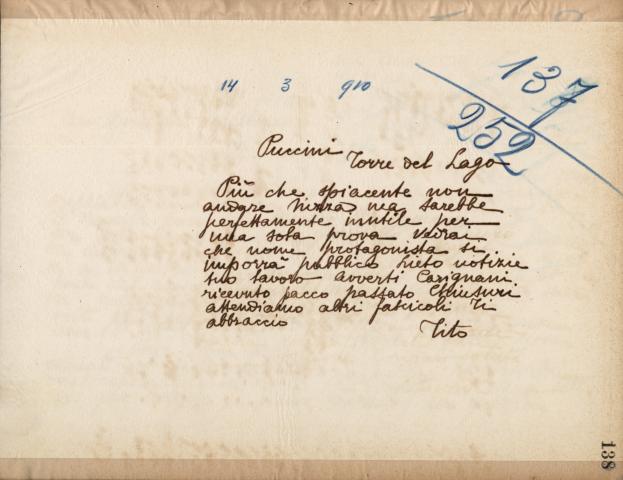 137
14 3 910
252
Puccini Torre del Lago
Più che spiacente non
andare Nizza ma sarebbe
perfettamente inutile per
una sola prova Vedrai
che nome protagonista si
imporrà pubblico Lieto notizie
tuo lavoro Avverti Carignani
ricevuto pacco passato Chiusuri
attendiamo altri fascicoli Ti
abbraccio Tito
138